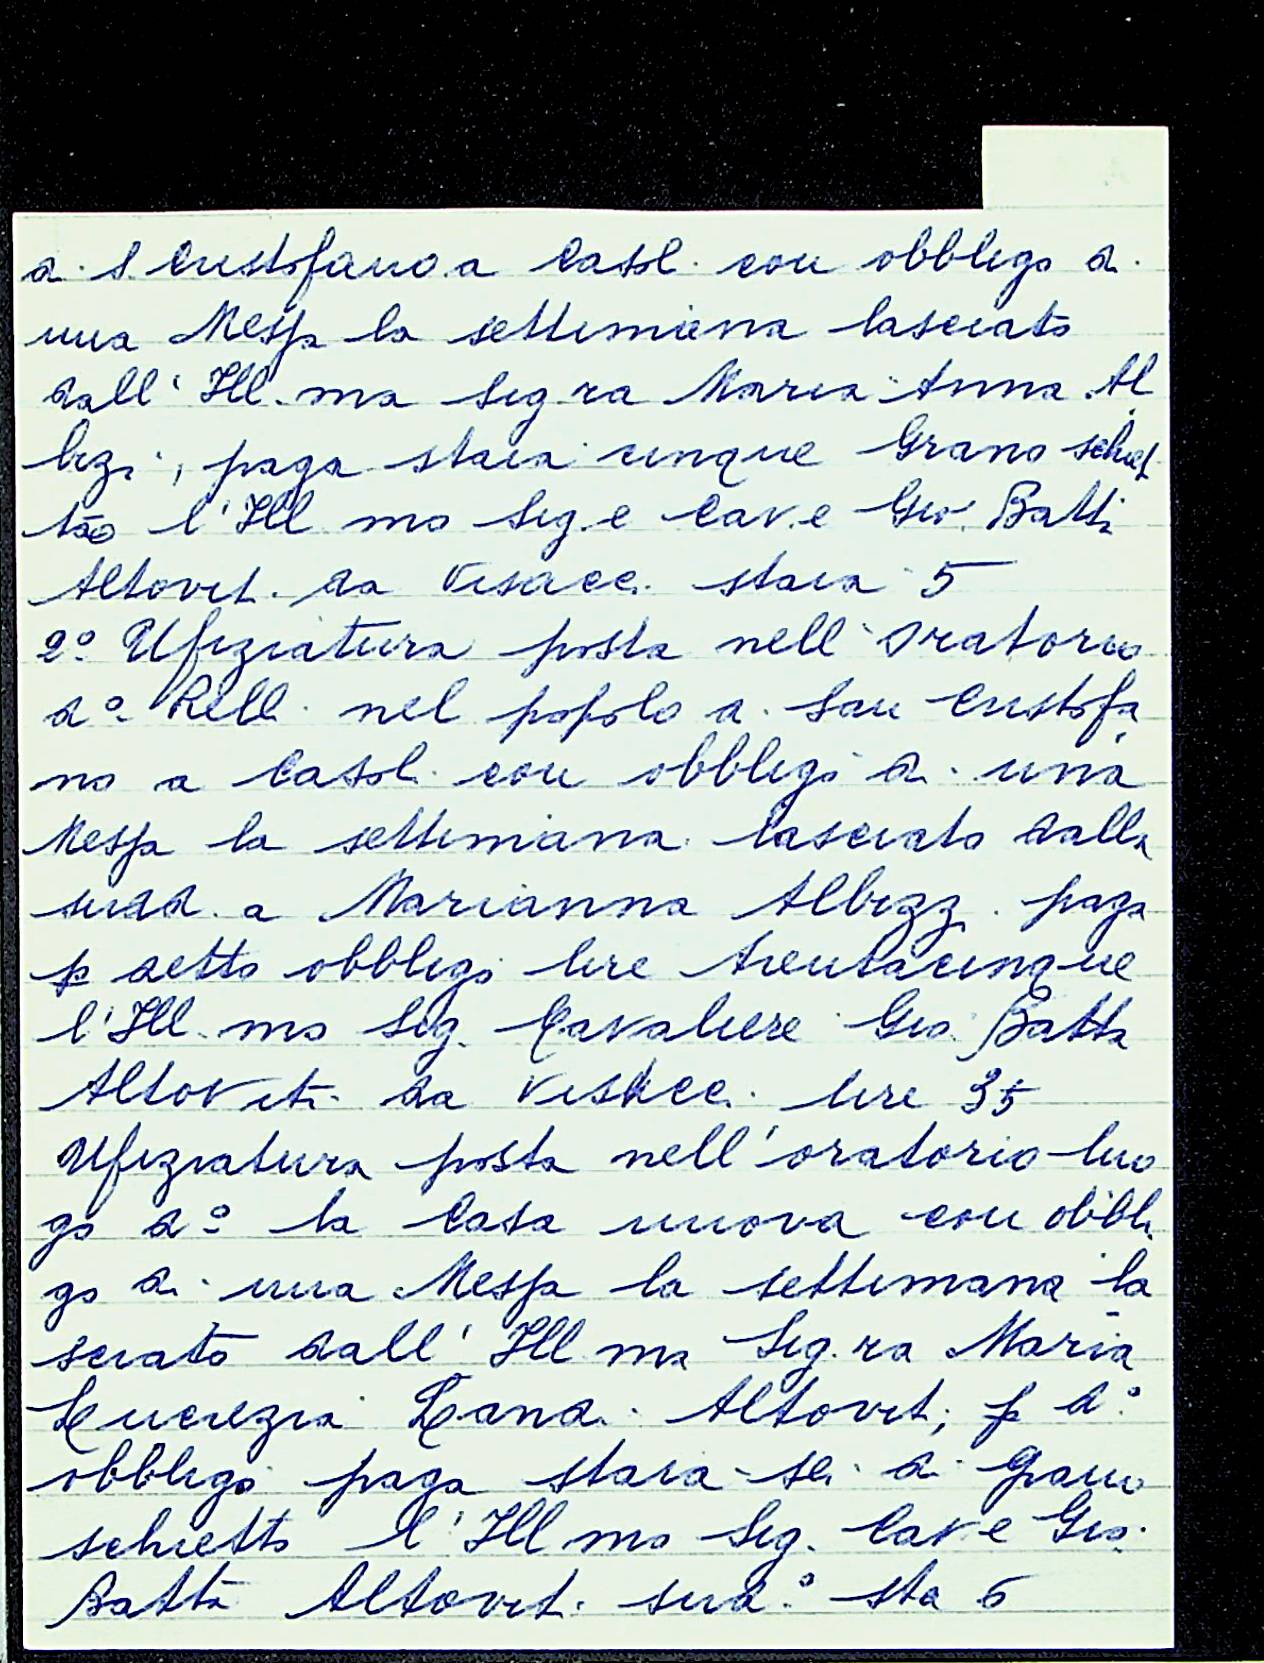 di S. Cristofano a Casol. con obbligo di
una Messa la settimana lasciato
dall'Ill.ma Sig.ra Maria Anna Al
bizi, paga staia cinque Grano schiet
to l'Ill.mo Sig.e Cav.e Gio. Batti
Altovit. da Visacci staia 5
2° Ufiziatura posta nell'Oratorio
d.° Rell. nel popolo di San Cristofa
no a Casol. con obbligo di una
Messa la settimana lasciato dalla
sudd.a Marianna Albizzi paga
p detto obbligo lire trentacinque
l'Ill.mo Sig. Cavaliere Gio. Batta
Altoviti da Visacci. lire 35
Ufiziatura posta nell'oratorio luo
go d.° la Casa nuova con obbli
go di una Messa la settimana la
sciato dall'Ill.ma Sig.ra Maria
Lucrezia Altovit; p d.°
obbligo paga staia sei di Grano
schietto l'Ill.mo Sig. Cav.e Gio.
Batta Altovit. sud.° sta 6